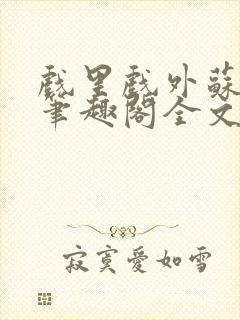 戲里戲外蘇
筆趣閣全文
寂寞愛如雪